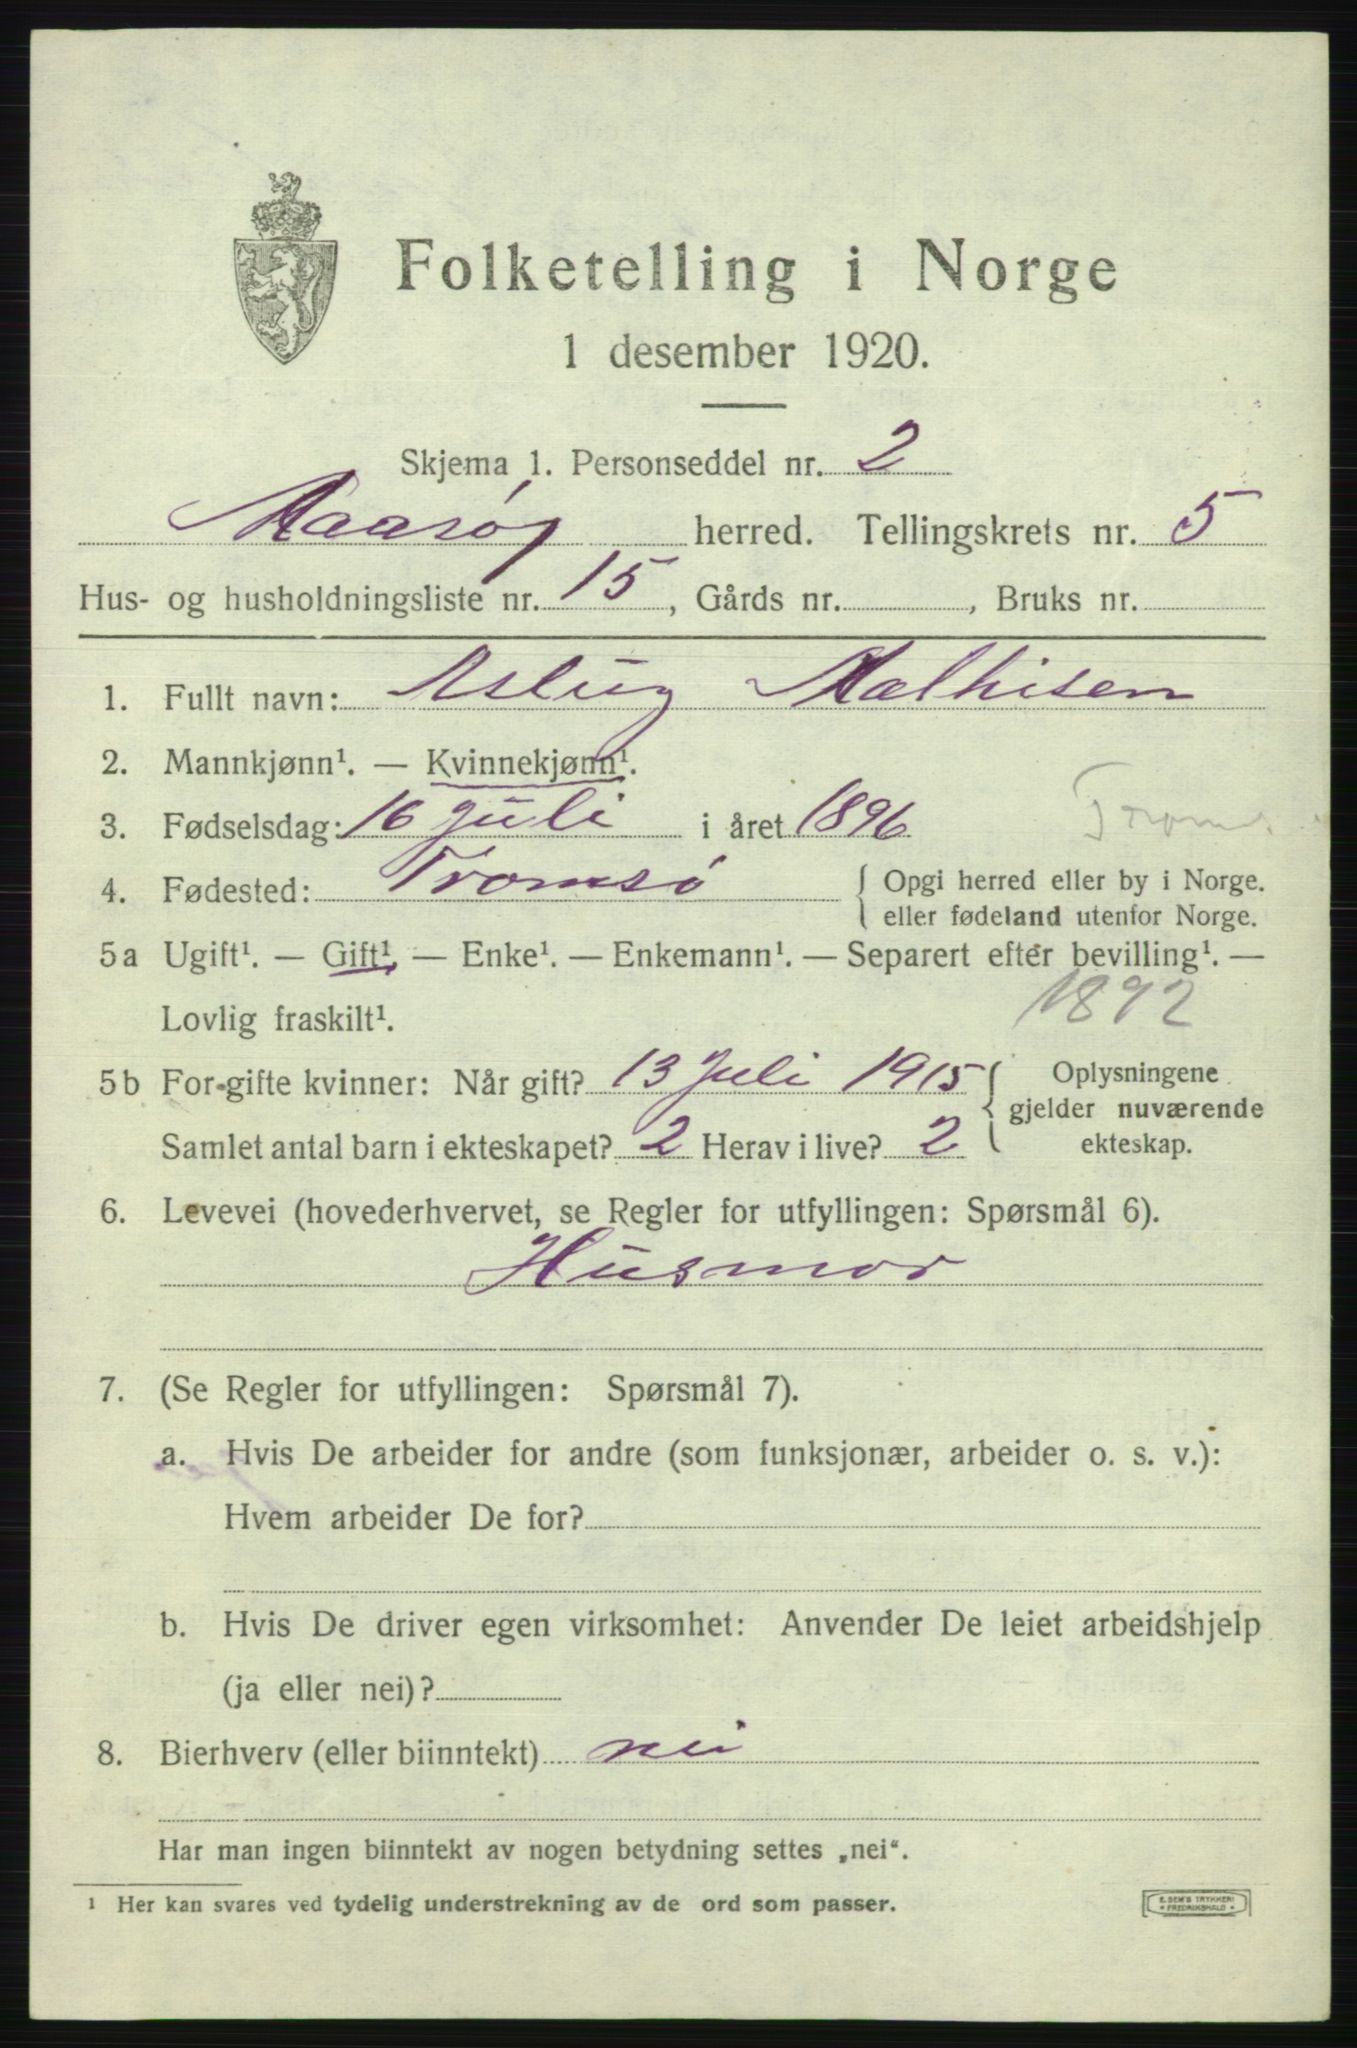 Folketelling i Norge
1 desember 1920.
Skjema 1. Personseddel nr. 2
Maasøy herred. Tellingskrets nr. 5
Hus- og husholdningsliste nr. 15, Gårds nr. , Bruks nr.
1. Fullt navn: Aslüg Mathisen
2. Mannkjønn¹. — Kvinnekjønn¹.
3. Fødselsdag: 16 jüli i året 1896
4. Fødested: Tromsö { Opgi herred eller by i Norge.
eller fødeland utenfor Norge.
5a Ugift¹. — Gift¹. — Enke¹. — Enkemann¹. — Separert efter bevilling¹. —
Lovlig fraskilt¹. 1892
5b For gifte kvinner: Når gift? 13 Juli 1915 { Oplysningene
gjelder nuværende
Samlet antal barn i ekteskapet? 2 Herav i live? 2 ekteskap.
6. Levevei (hovederhvervet, se Regler for utfyllingen: Spørsmål 6).
Hüsmor
7. (Se Regler for utfyllingen: Spørsmål 7).
a. Hvis De arbeider for andre (som funksjonær, arbeider o. s. v.):
Hvem arbeider De for?
b. Hvis De driver egen virksomhet: Anvender De leiet arbeidshjelp
(ja eller nei)?
8. Bierhverv (eller biinntekt) nei
Har man ingen biinntekt av nogen betydning settes „nei“.
¹ Her kan svares ved tydelig understrekning av de ord som passer.
E. SEM'S TRYKKERI
FREDRIKSHALD